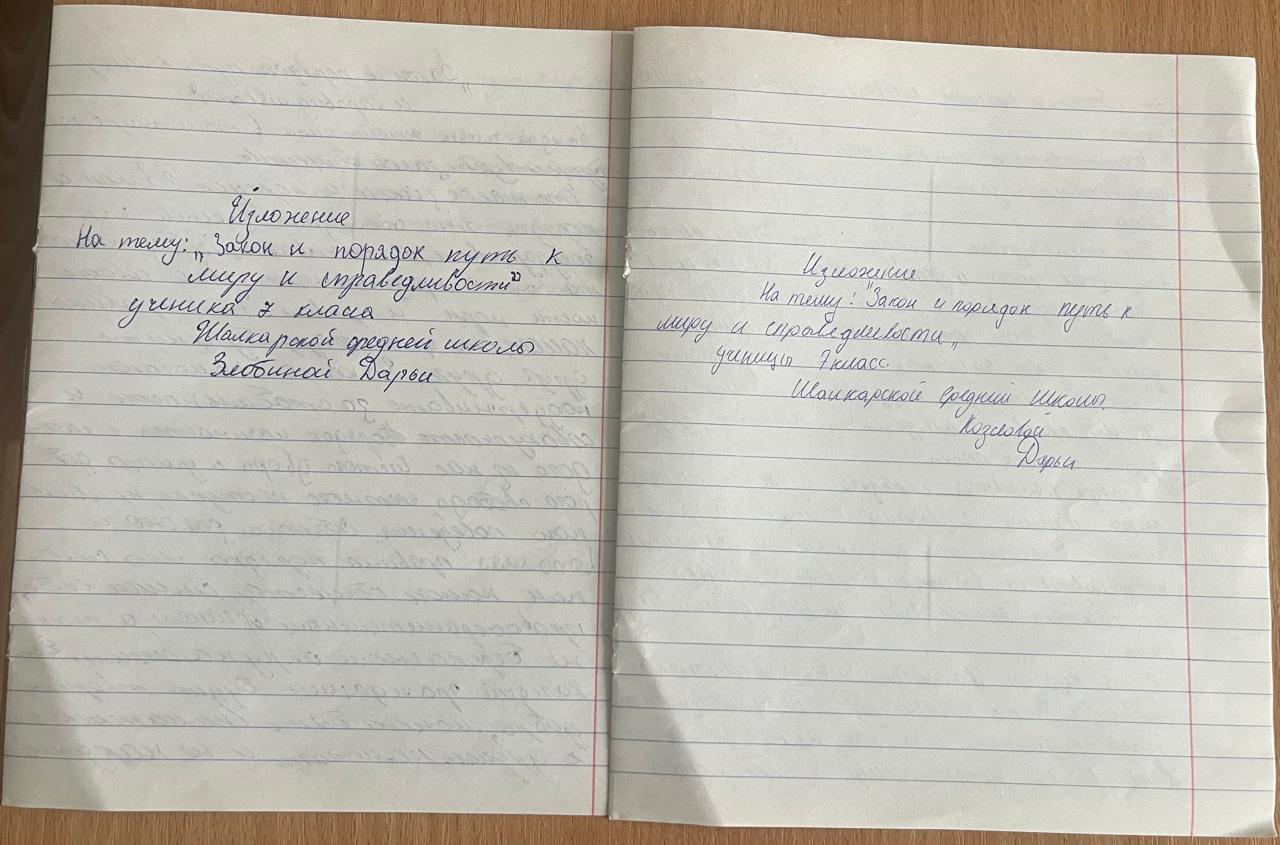 Изложение
На тему: „Закон и порядок путь к
миру и справедливости”
ученика 7 класса
Шалкарской средней школы
Злобиной Дарьи
Изложение
На тему: "Закон и порядок путь к
миру и справедливости„
ученицы 7 класс.
Шалкарской средней школы.
Козловой
Дарьи